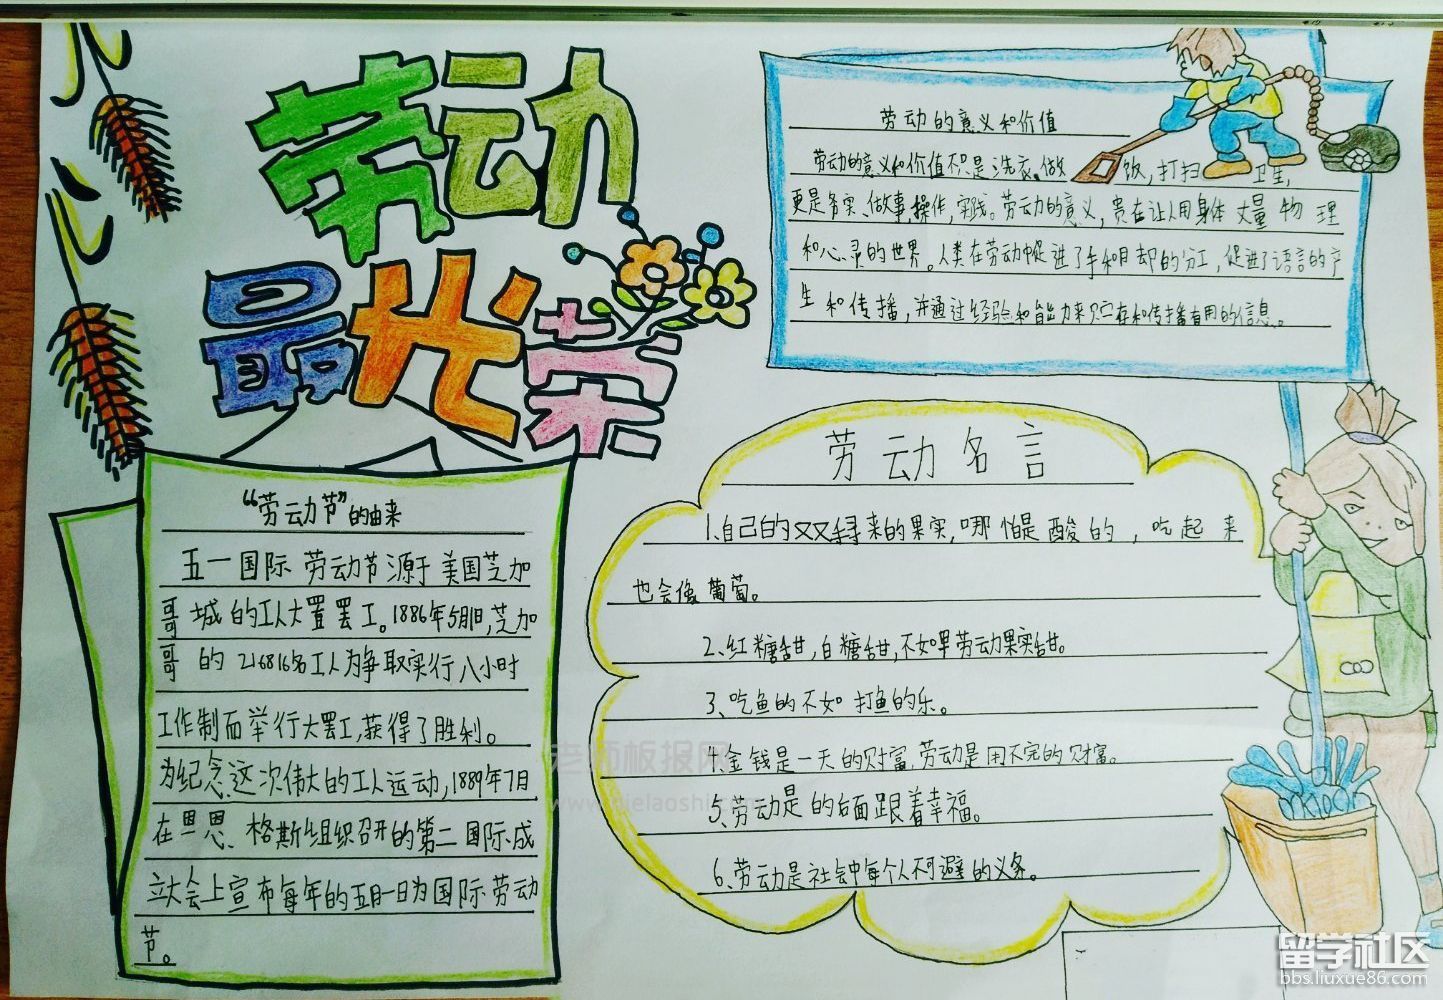 劳动
最光荣
劳动的意义和价值
劳动的意义和价值不只是洗衣、做饭,打扫卫生,
更是务实、做事,操作,实践。劳动的意义,贵在让人用身体丈量物理
和心灵的世界。人类在劳动中促进了手和脚的分工,促进了语言的产
生和传播,并通过经验和能力来贮存和传播有用的信息。
“劳动节”的由来
五一国际劳动节源于美国芝加
哥城的工人大罢工。1886年5月1日,芝加
哥的216816名工人为争取实行八小时
工作制而举行大罢工,获得了胜利。
为纪念这次伟大的工人运动,1889年7月
在恩恩、格斯组织召开的第二国际成
立大会上宣布每年的五月一日为国际劳动
节。
劳动名言
1、自己的双手寻来的果实,哪怕是酸的,吃起来
也会像葡萄。
2、红糖甜,白糖甜,不如劳动果实甜。
3、吃鱼的不如打鱼的乐。
4、金钱是一天的财富,劳动是用不完的财富。
5、劳动是的后面跟着幸福。
6、劳动是社会中每个人不可避的义务。
老师板报网
留学社区
bbs.liuxue86.com